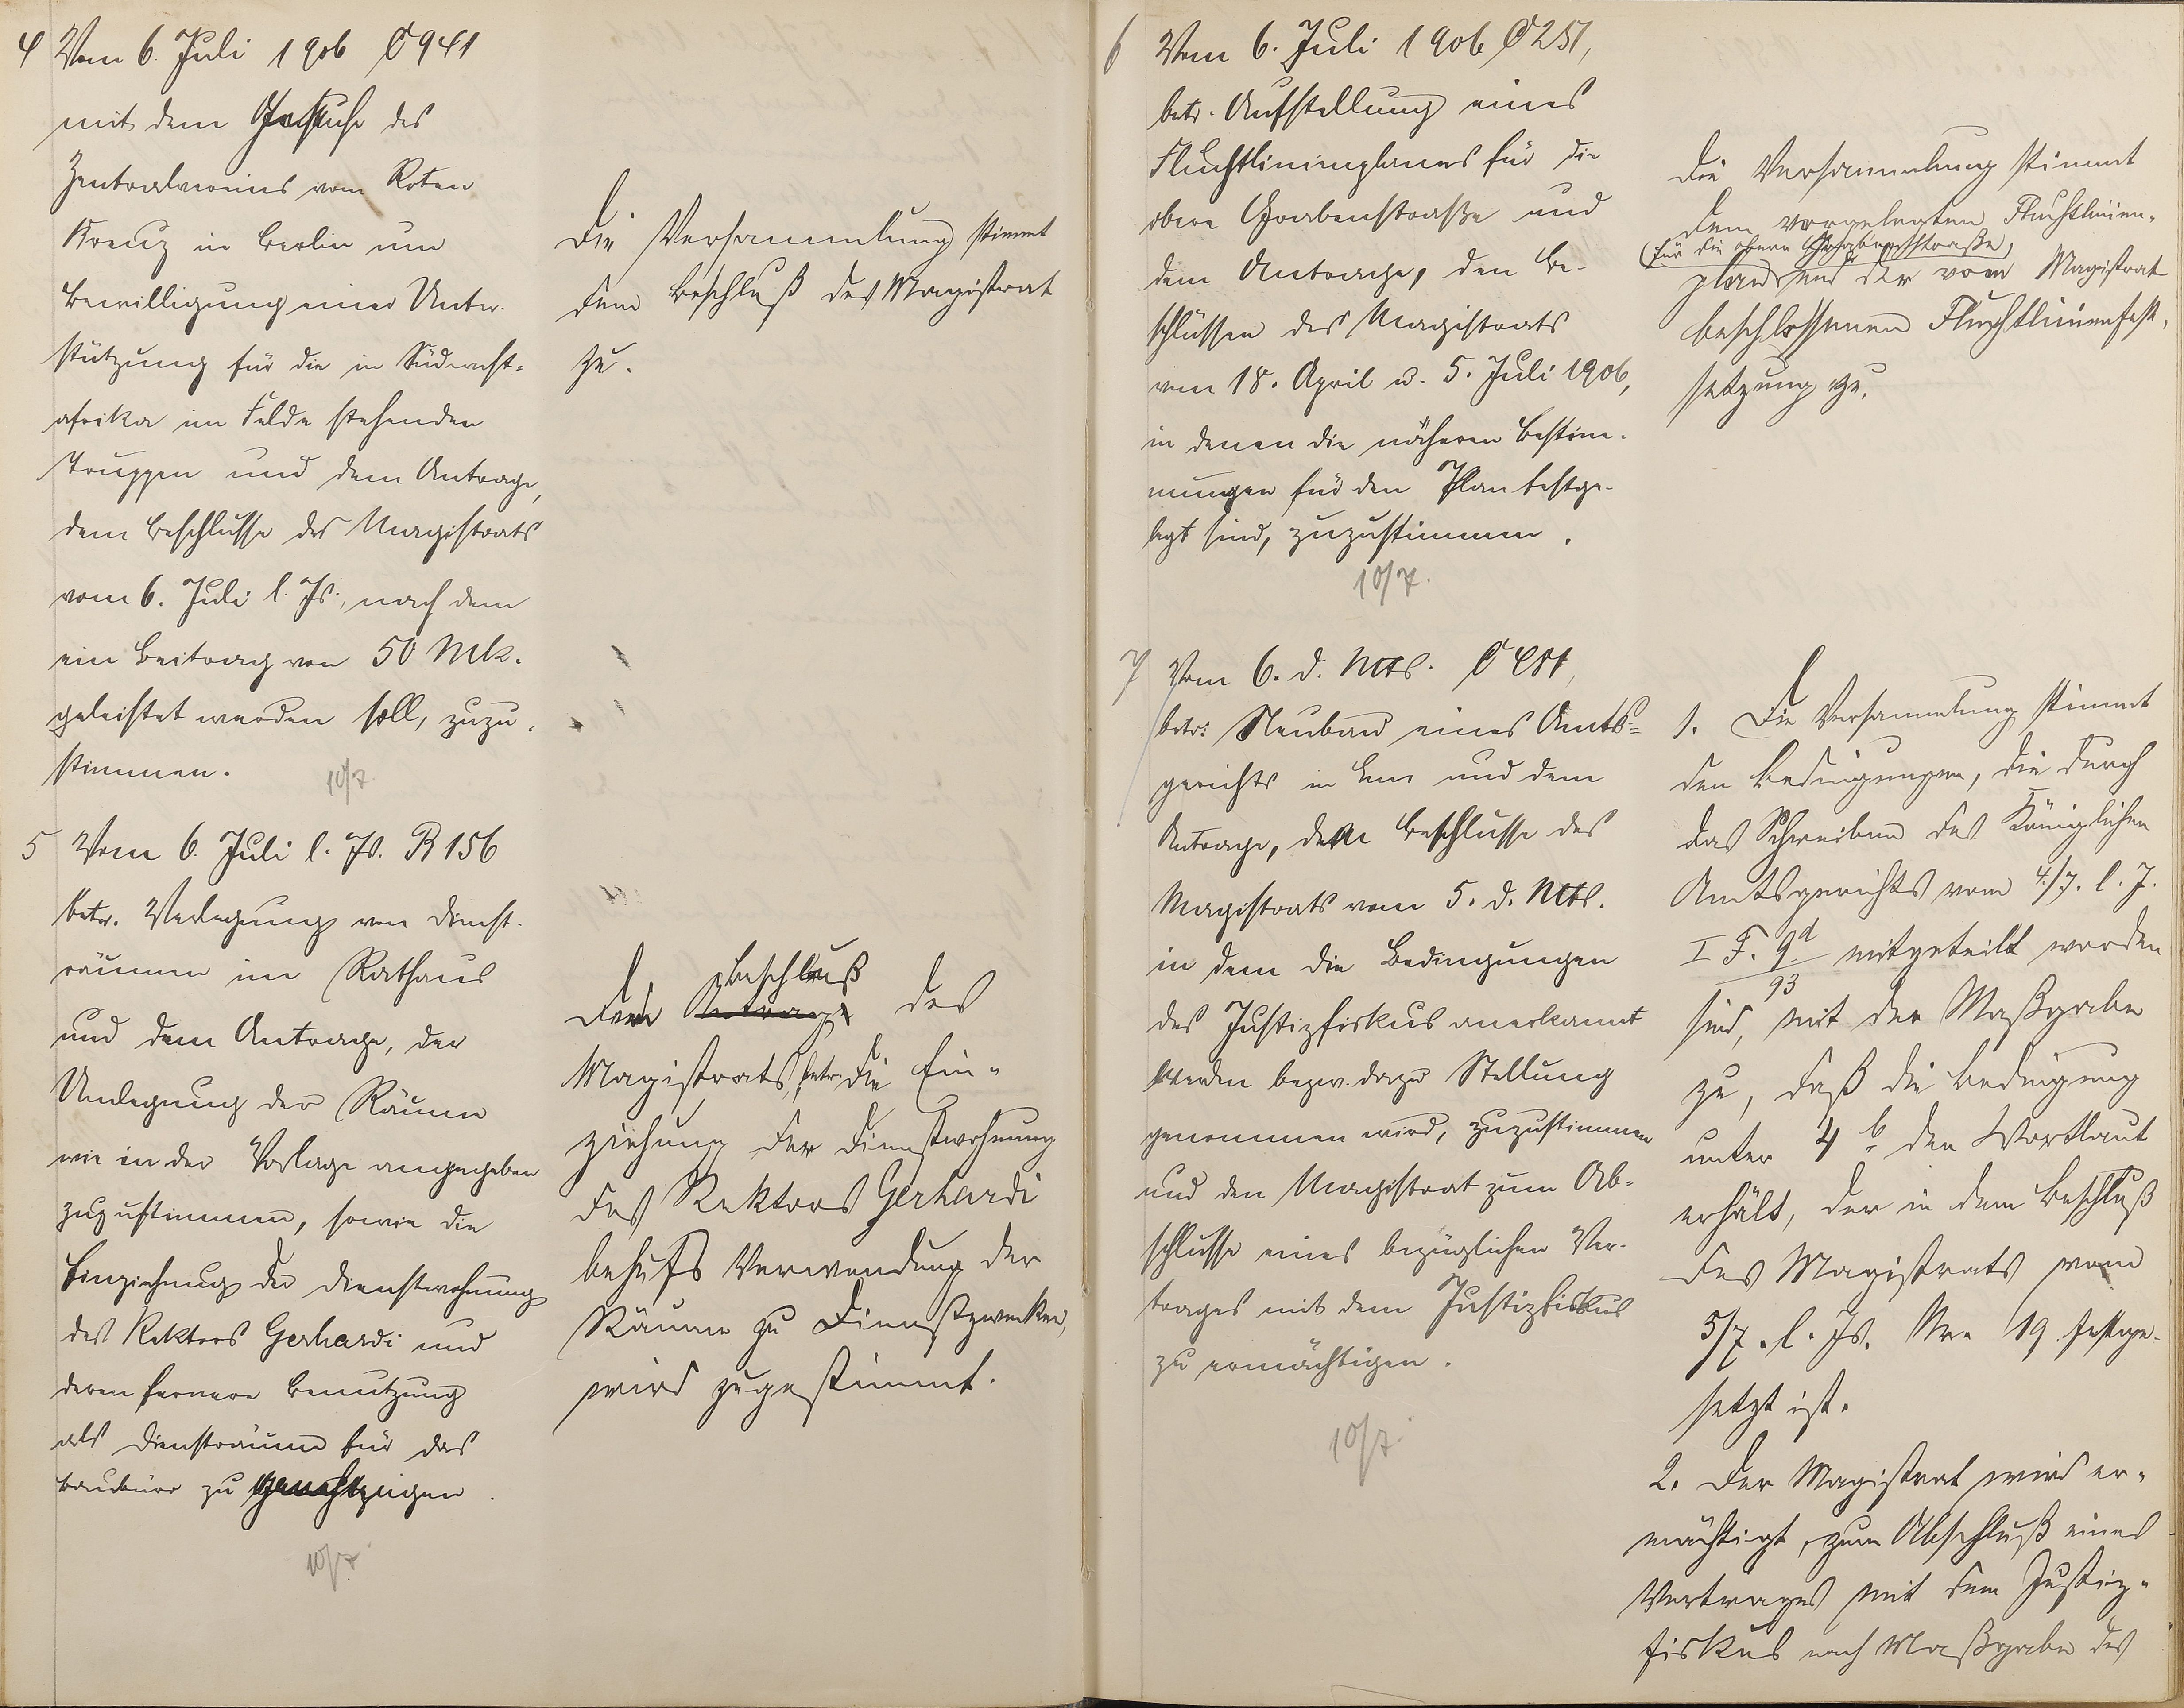 4 Vom 6. Juli 1906 C 941
mit dem Gesuche des
Zentralvereins vom Roten
Kreuz in Berlin um
Bewilligung einer Unter-
stützung für die in Südwest-
afrika im Felde stehenden
Truppen und dem Antrage,
dem Beschlusse des Magistrats
vom 6. Juli l. Js., nach dem
ein Beitrag von 50 Mk.
geleistet werden soll, zuzu-
stimmen.
10/7.
Die Versammlung stimmt
dem Beschluß des Magistrat
zu.
5 Vom 6. Juli l. Js. R 156
betr. Verlegung von Dienst-
räumen im Rathaus
und dem Antrage, der
Umlegung der Räume
wie in der Vorlage angegeben
zuzustimmen, sowie die
Einziehung der Dienstwohnung
des Rektors Gerhardi und
deren fernere Benutzung
als Diensträume für das
Baubüro zu
10/7
Beschluß
Dem Antrage des
Magistrats, betr. die Ein-
ziehung der Dienstwohnung
des Rektors Gerhardi
behufs Verwendung der
Räume zu Dienstzwecken,
wird zugestimmt.
6 Vom 6. Juli 1906 C 251,
betr. Aufstellung eines
Fluchtlinienplanes für die
obere Grabenstraße und
dem Antrage, den Be-
schlüssen des Magistrats
vom 18. April u. 5. Juli 1906,
in denen die näheren Bestim-
mungen für den Plan festge-
legt sind, zuzustimmen.
10/7.
Die Versammlung stimmt
dem vorgelegten Fluchtlinien-
(für die obere Grabenstraße)
plans und der vom Magistrat
beschlossenen Fluchtlinienfest-
setzung zu.
7 Vom 6. d. Mts. C
betr. Neubau eines Amts-
gerichts in Ems und dem
Antrage, dem Beschlusse des
Magistrats vom 5. d. Mts.
in dem die Bedingungen
des Justizfiskus anerkannt
werden bezw. dazu Stellung
genommen wird, zuzustimmen
und den Magistrat zum Ab-
schlusse eines bezüglichen Ver-
trages mit dem Justizfiskus
zu ermächtigen.
10/7.
1. Die Versammlung stimmt
den Bedingungen, die durch
das Schreiben des Königlichen
Amtsgerichts vom 4/7. l. J.
I F. 9d mitgeteilt worden
93
sind, mit der Maßgabe
zu, daß die Bedingung
unter 4 b den Wortlaut
erhält, der in dem Beschluß
des Magistrats vom
5/7. l. Js. Nro 19 festge-
setzt ist.
2. Der Magistrat wird er-
mächtigt, zum Abschluß eines
Vertrages mit dem Justiz-
fiskus nach Maßgabe des